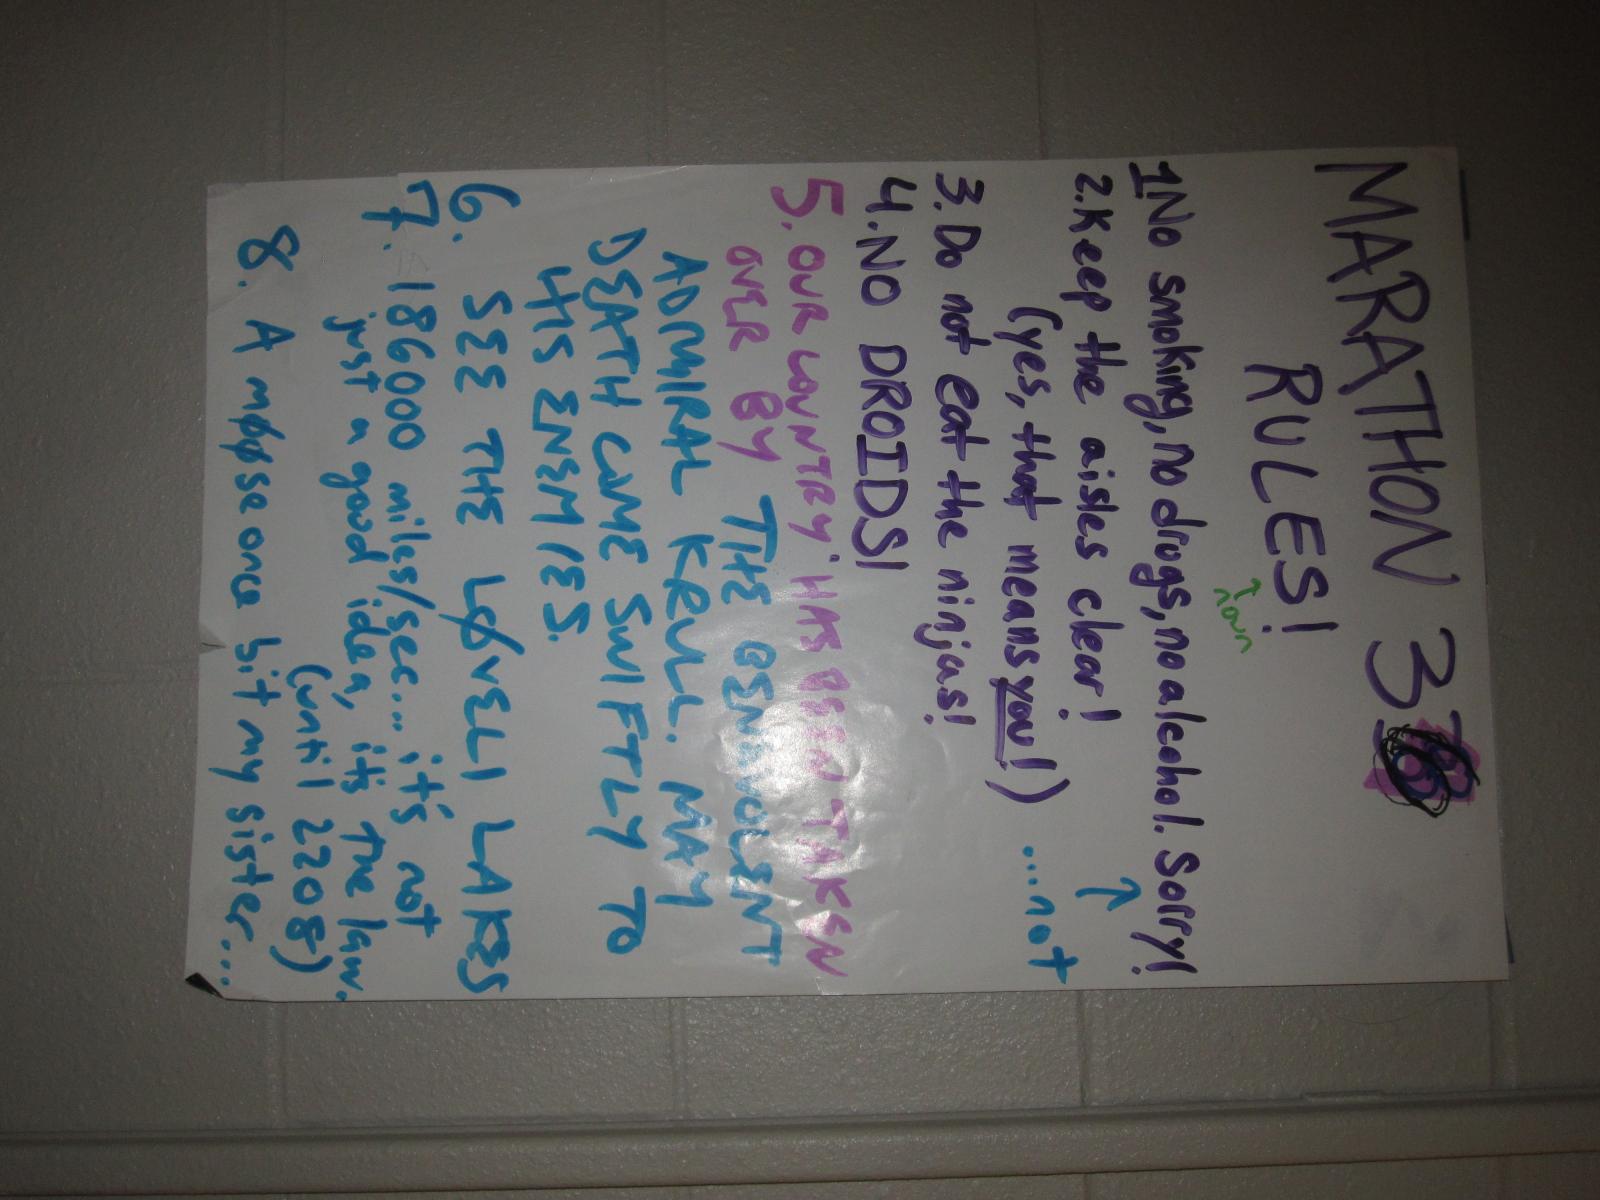 MARATHON 33
RULES!
noun
1 No smoking, no drugs, no alcohol. Sorry!
2. Keep the aisles clear!
(yes, that means you!) ...not
3. Do not eat the ninjas!
4. NO DROIDS!
5. OUR COUNTRY HAS BEEN TAKEN
OVER BY THE BENEVOLENT
ADMIRAL KRULL. MAY
DEATH COME SWIFTLY TO
HIS ENEMIES.
6. SEE THE LØVELI LAKES
7. 186000 miles/sec... it's not
just a good idea, it's the law.
(until 2208)
8. A møøse once bit my sister...